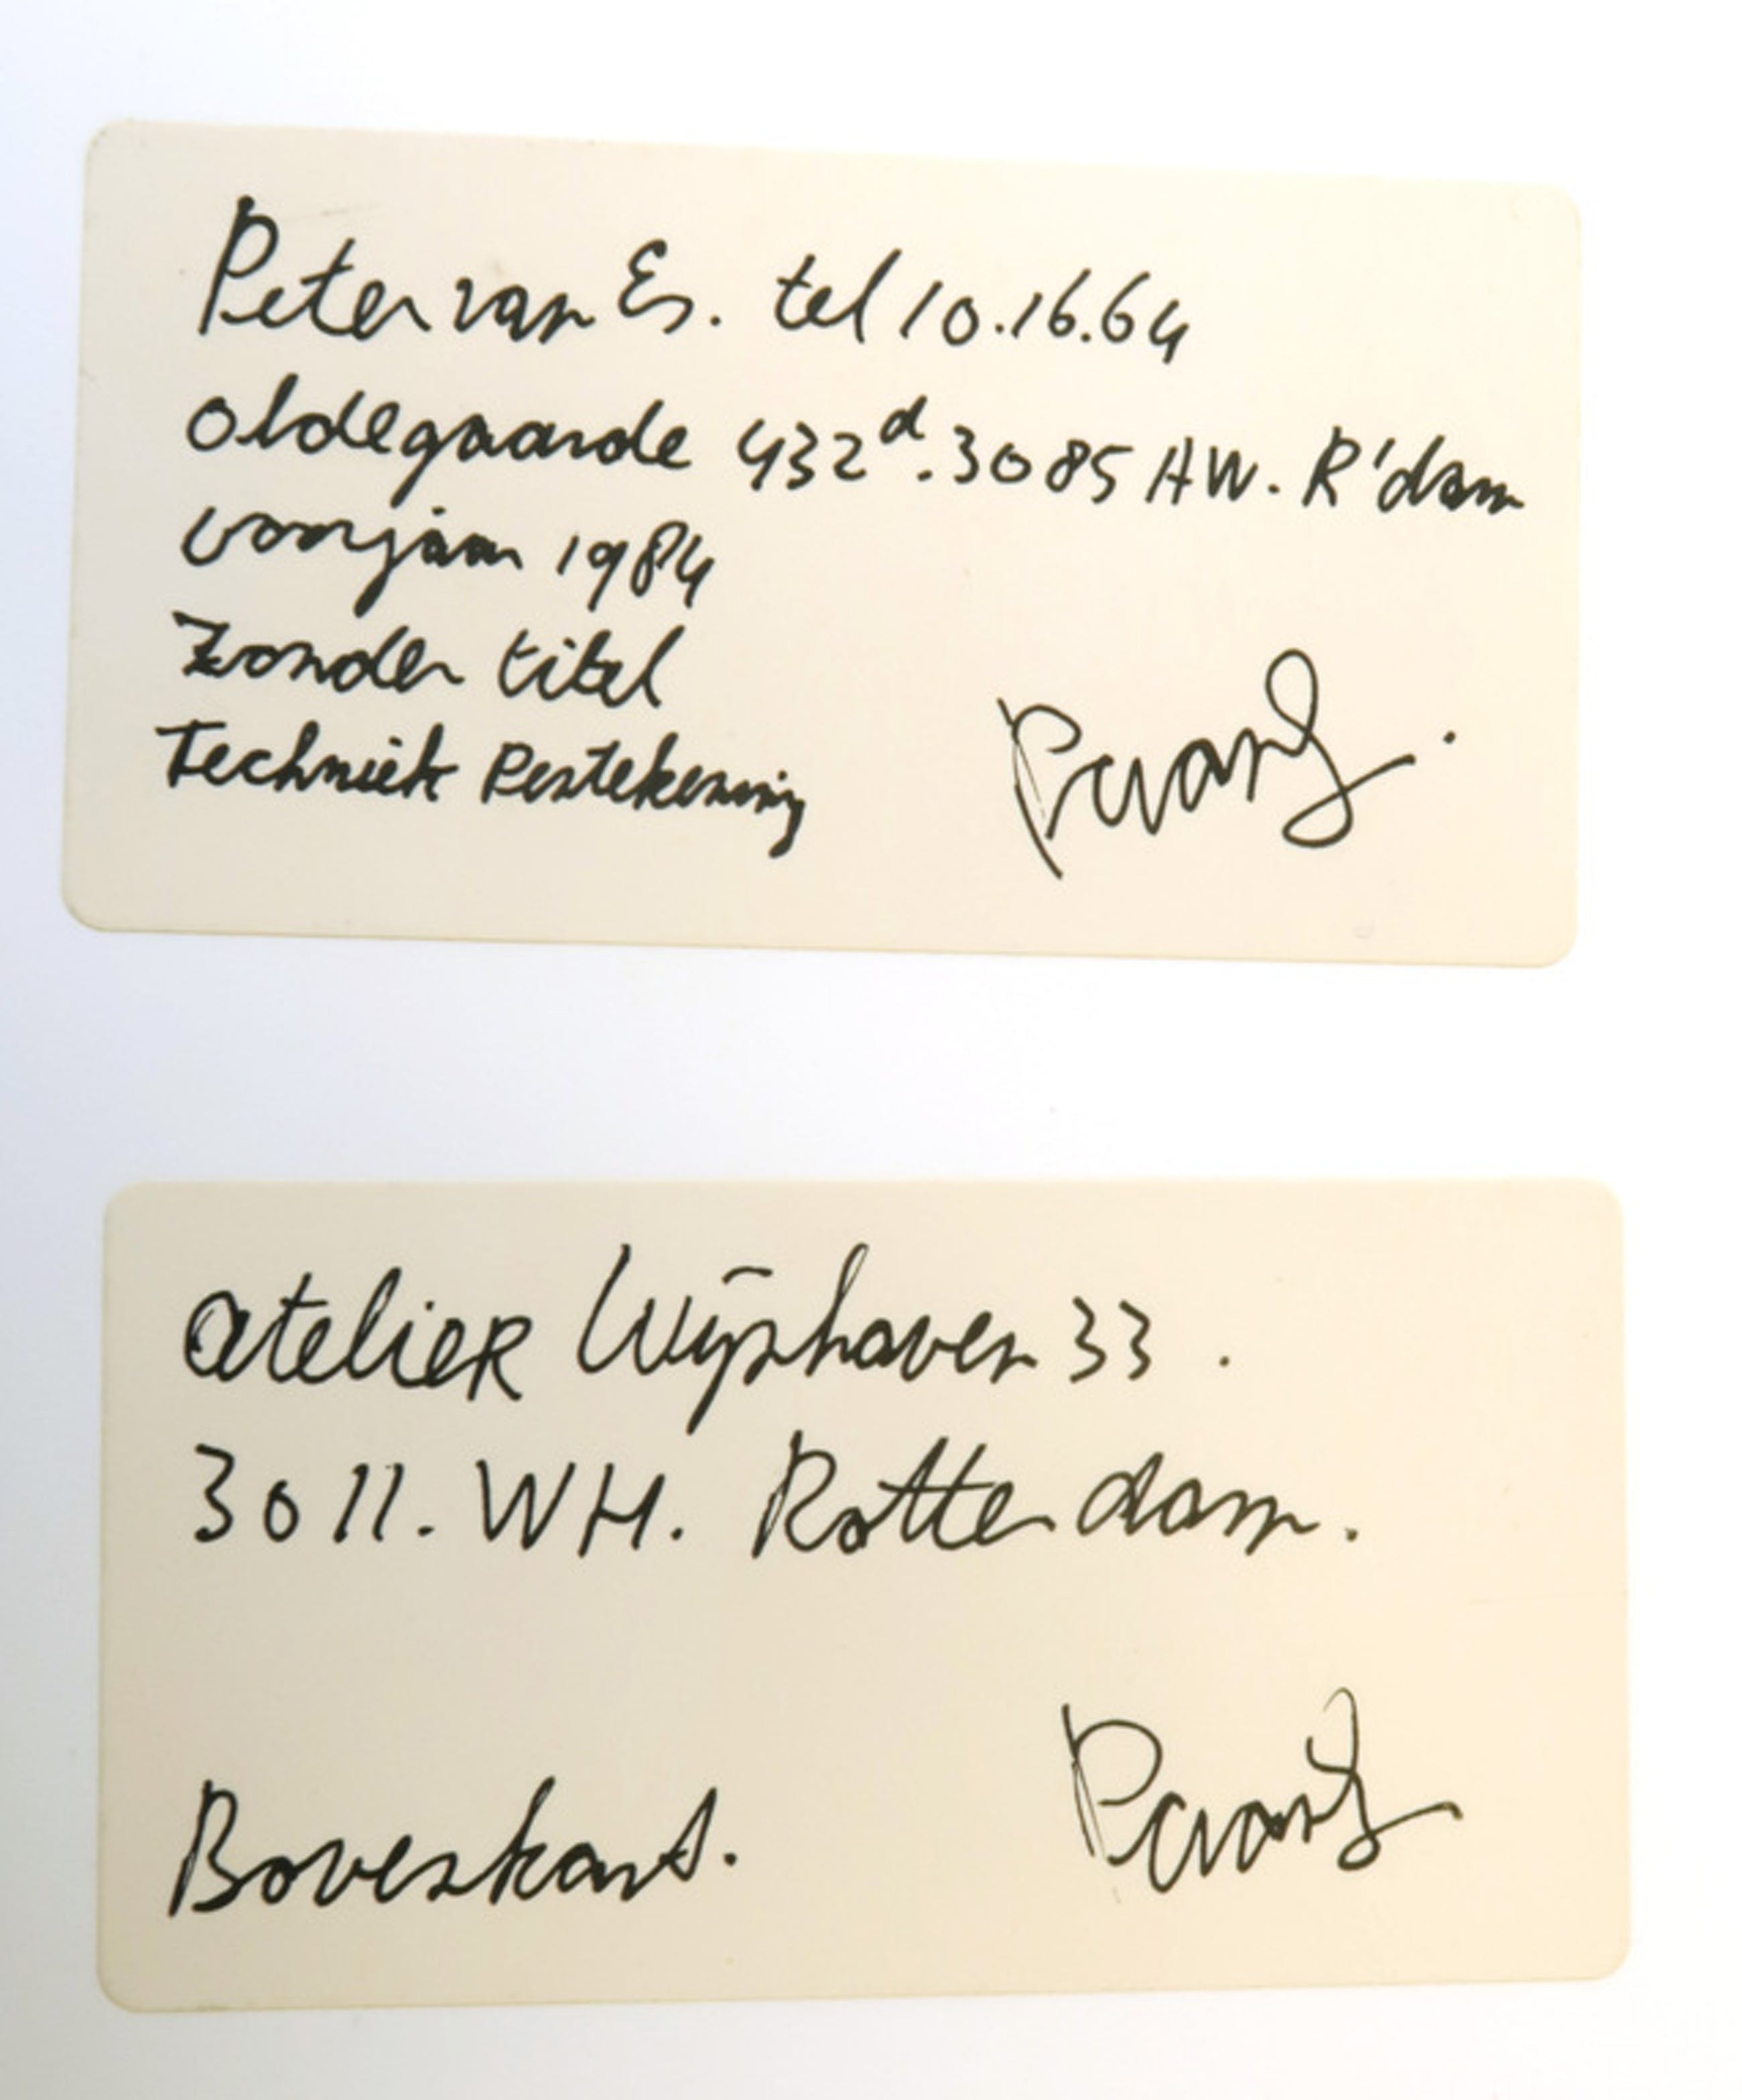 Peter van Es. tel 10.16.64
Oldegaarde 432d. 3085 HW. R'dam
voorjaar 1984
Zonder titel
Techniek Pentekening
atelier Wijnhaven 33.
3011. WH. Rotterdam.
Bovenkant.